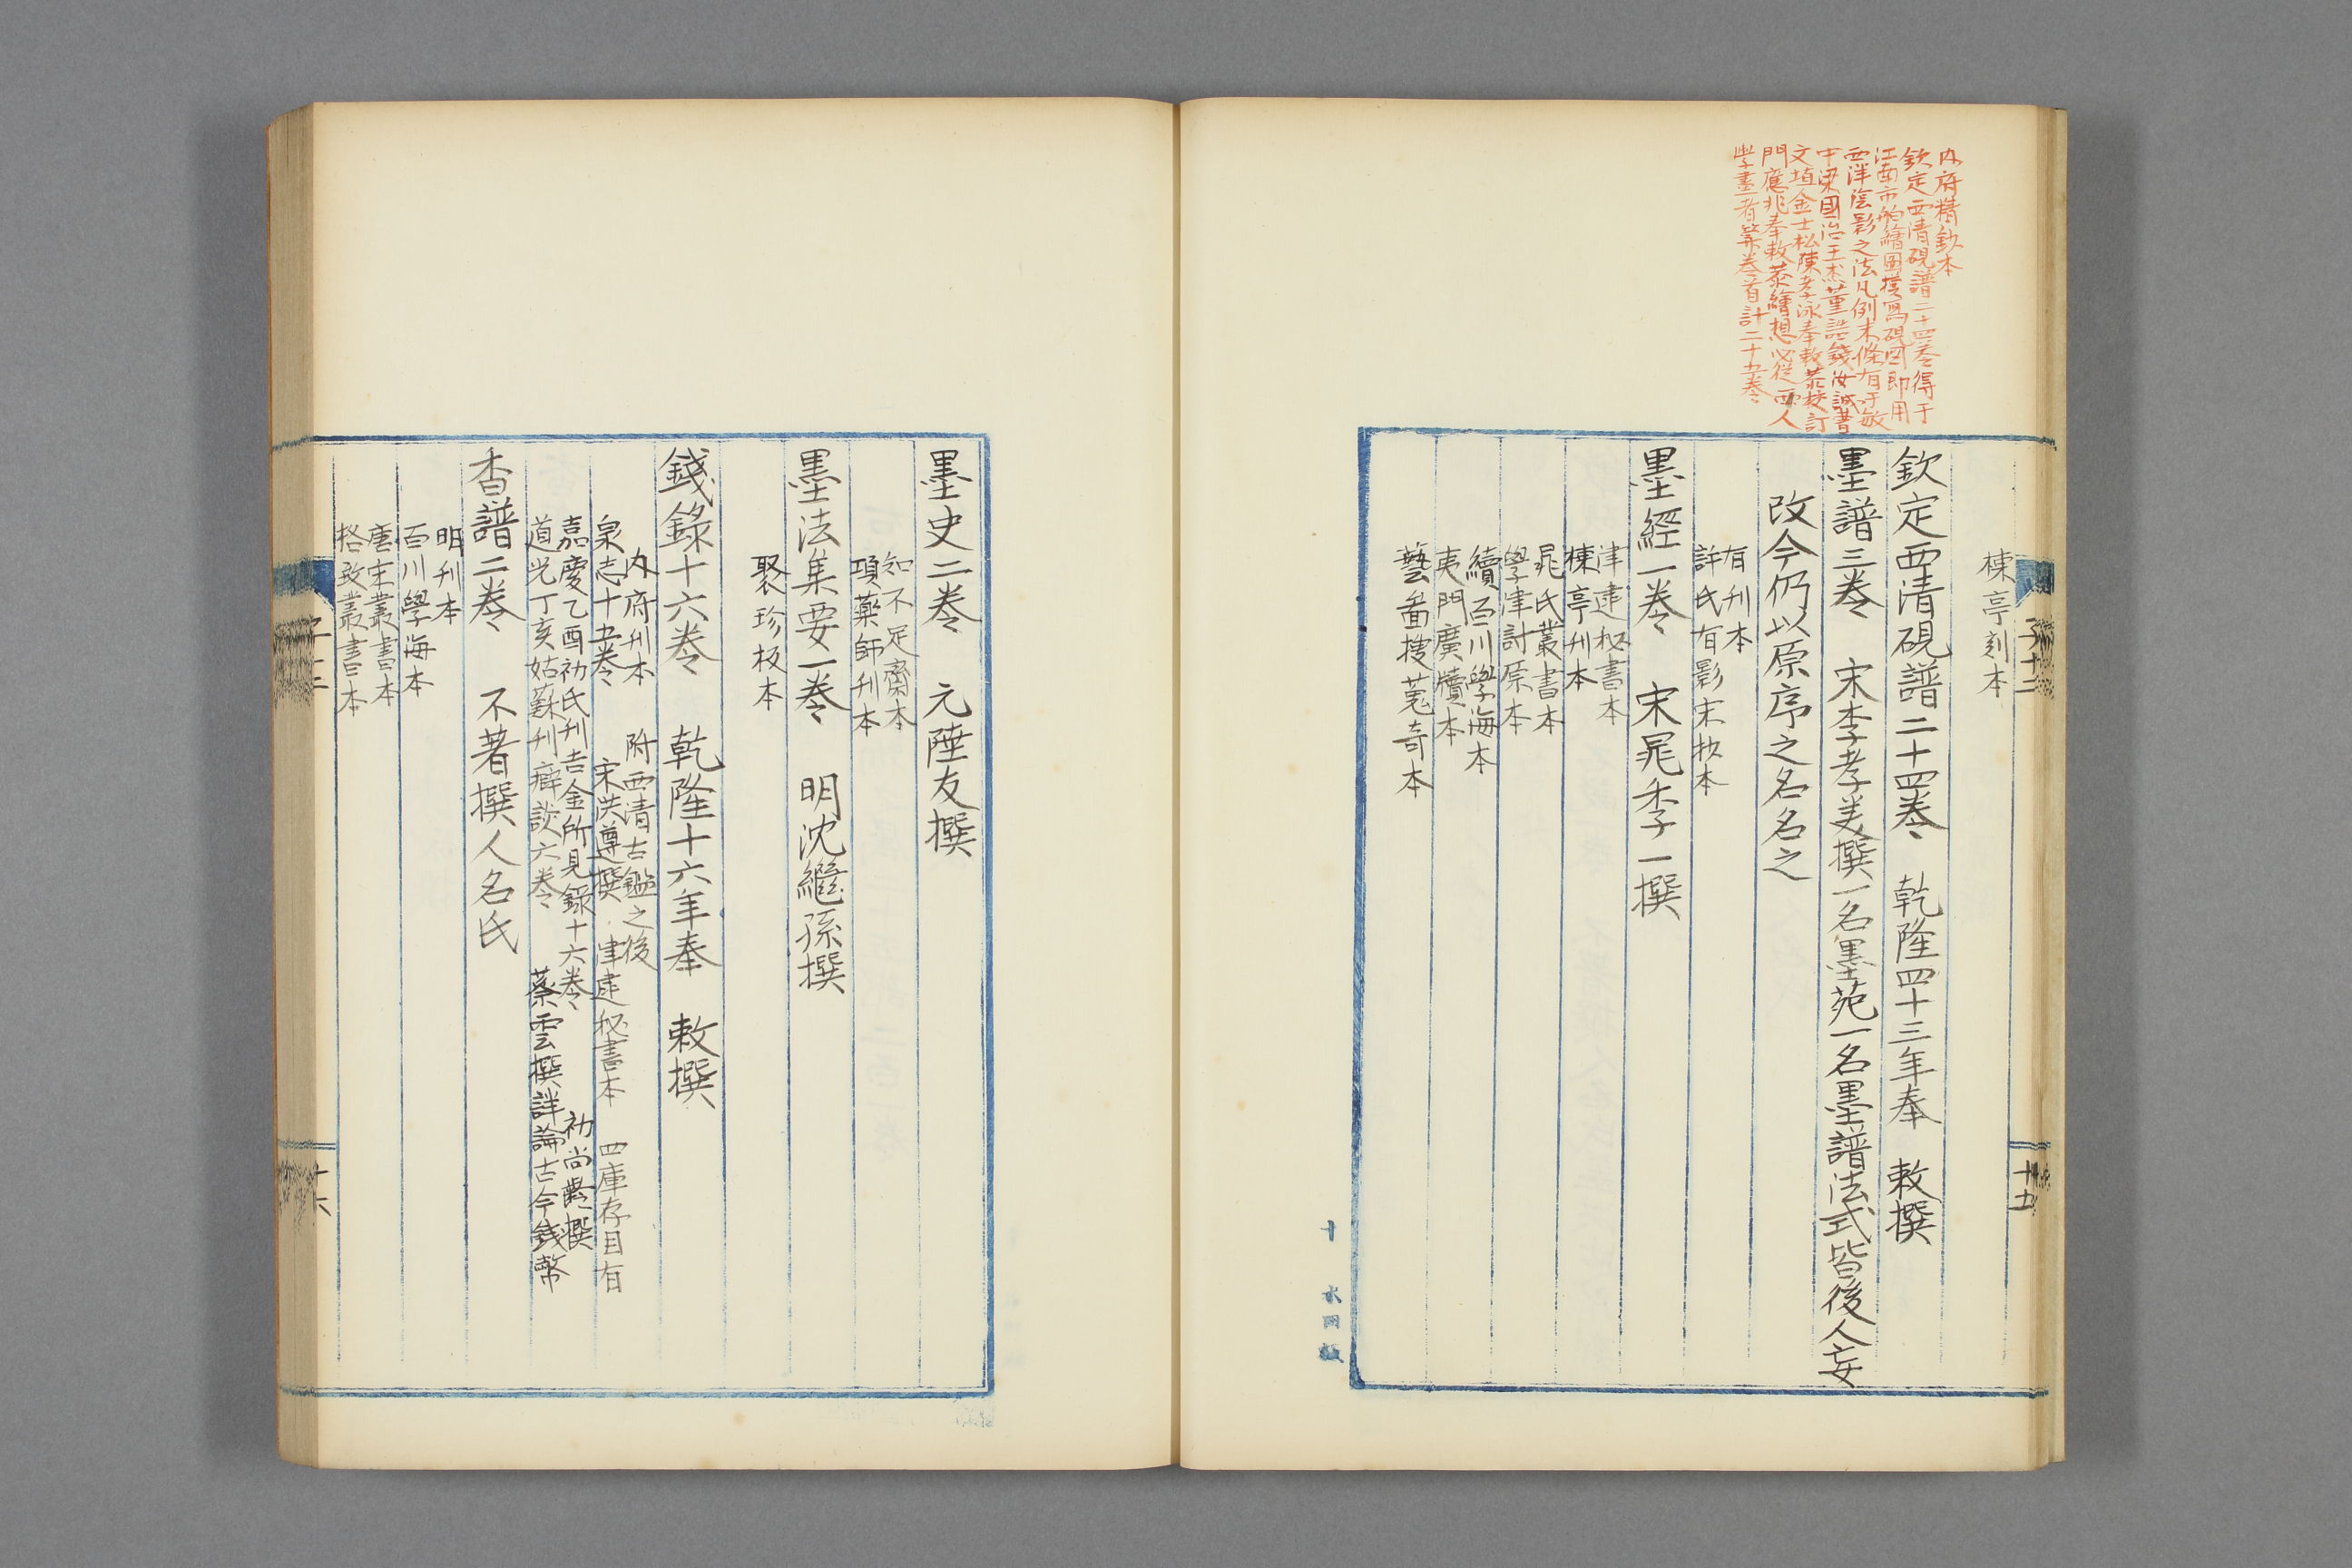 內府精鈔本
欽定西清硯譜二十四卷得于
江南市舶繪圖摸寫硯図即用
西洋陰影之法凡例末條有于敏
中梁國治王杰董誥錢汝誠書
文埴金士松陳孝泳奉敕恭校訂
門應兆奉敕恭繪想必從西人
學畫者第卷首計二十五卷
楝亭刻本
欽定西清硯譜二十四卷 乾隆四十三年奉 敕撰
墨譜三卷 宋李孝美撰一名墨苑一名墨譜法式皆後人妄
改今仍以原序之名名之
有刊本
許氏有影宋抄本
墨經一卷 宋晁季一撰
津逮秘書本
楝亭刊本
晁氏叢書本
學津討原本
續百川學海本
夷門廣牘本
藝圃搜蒐奇本
子十二
十五
墨史二卷 元陸友撰
知不足齋本
項藥師刊本
墨法集要一卷 明沈繼孫撰
聚珍板本
錢錄十六卷 乾隆十六年奉 敕撰
內府刊本 附西清古鑑之後
泉志十五卷 宋洪遵撰 津逮秘書本 四庫存目有
嘉慶乙酉初氏刊吉金所見錄十六卷 初尚齡撰
道光丁亥姑蘇刊癖談六卷 蔡雲撰詳論古今錢幣
香譜二卷 不著撰人名氏
明刊本
百川學海本
唐宋叢書本
格致叢書本
十六